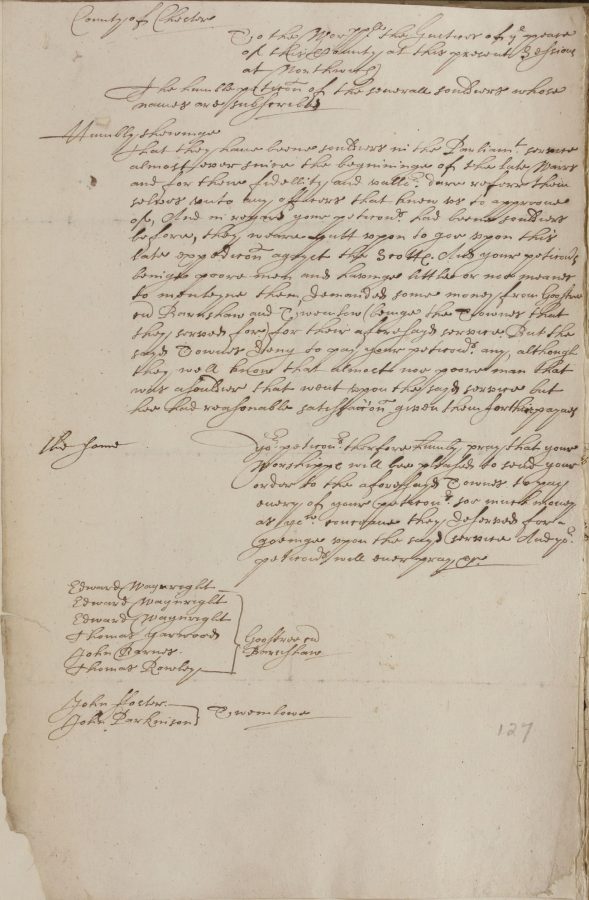 County of Chester
To the Wor:pll the Justices of ye peace
of this County at this present Sessions
at Northwich
The humble peticon of the severall souldiers whose
names are subscribed
Humbly shewinge
That they have beene souldiers in the Parliamt service
almost ever since the begininge of the late Warrs
and for theire fidellity and vallor. dare referre them
selves unto any officers that knew us to approove
of, And in regard your peticonrs had beene souldiers
before, they weare putt upon to goe upon this
late expedicon against the Scotts. And your peticonrs
beinge poore men and havinge little or noe meanes
to manteyne them, demanded some money from Goostree
cu Barnshaw and Twemlow (beinge the Townes that
they served for) for their aforesayd service. But the
sayd Townes deny to pay your peticonrs. any, although
they well know that almost noe poore man that
was a souldier that went upon the sayd service but
hee had reasonable satisfaccon given them for their paynes
Yor. peticonrs. therfore humbly pray that your
Worshipps will bee pleased to send your
order to the aforesayd Townes to pay
every of your peticonrs soe much money
as you conceave they deserved for
goeinge upon the sayd service And yor.
peticonrs will ever pray &c.
Edward Waynright
Edward Waynright
Edward Waynright
Thomas Garwood
John Barnes
Thomas Rowley
Goostree cu
Barnshaw
John Foster
John Parkinson
Twemlowe
127